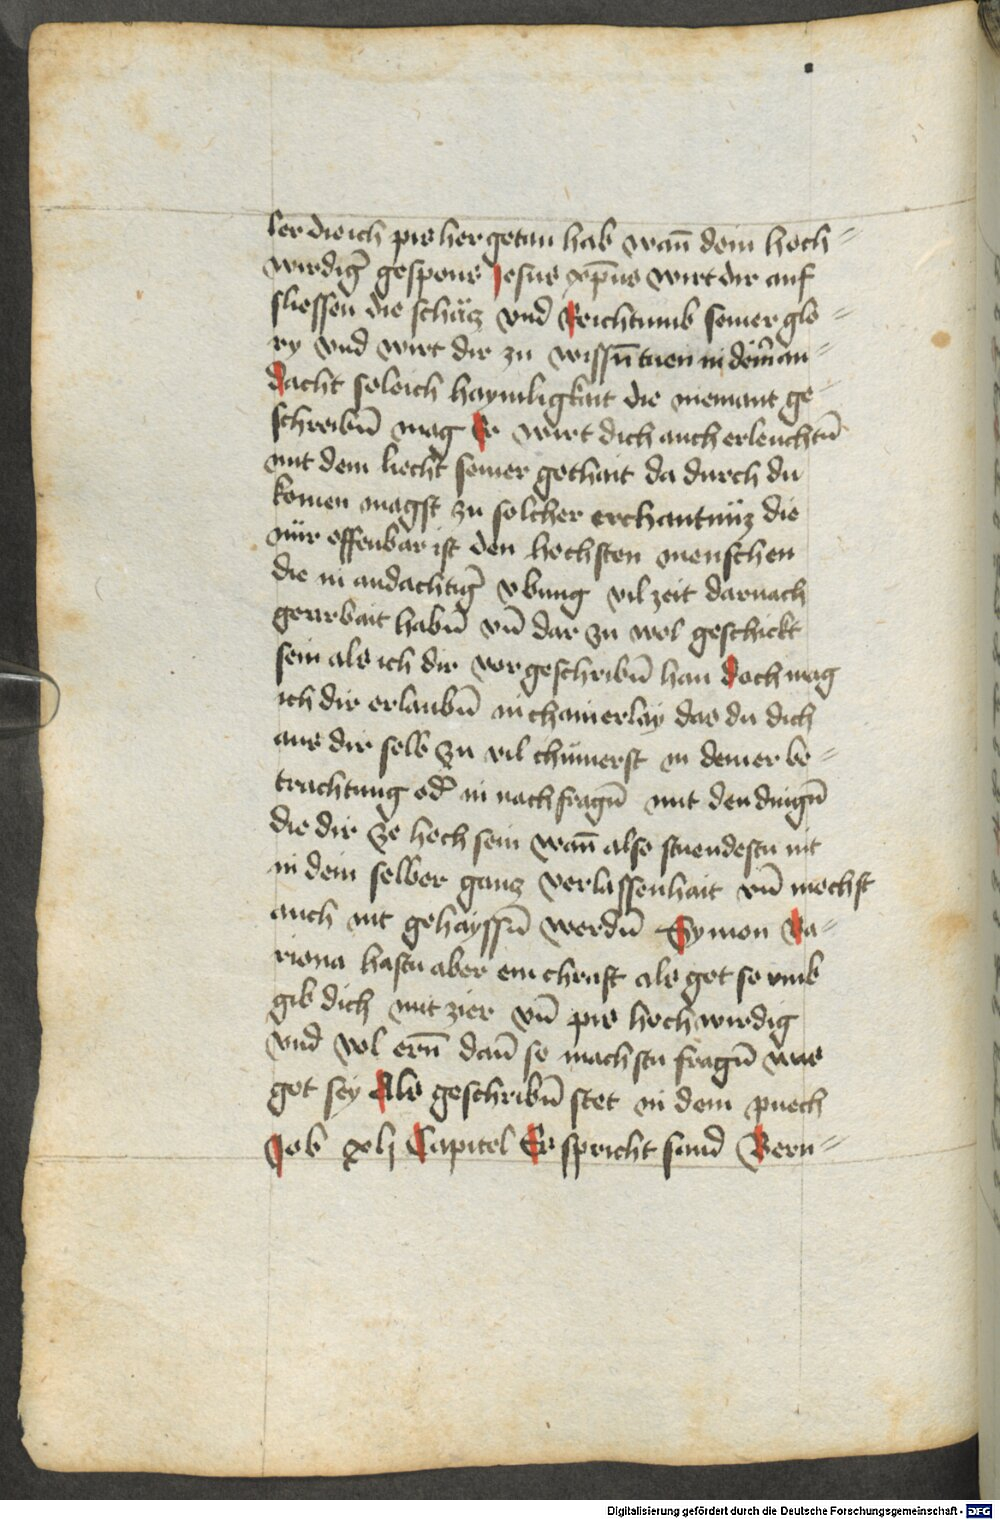 ler die ich pis her getan hab wan̄ dein hoch-
wirdig̃ gespons Jesus xp̄us wirt dir auf
sliessen die schätz vnd Reichtumb seiner glo-
ry vnd wirt dir zu wissn̄ tuen in dein̄ an-
dacht soleich haymligkait die niemant ge-
schreibn̄ mag Er wirt dich auch erleuchtn̄
mit dem liecht seiner gothait da durch du
komen magst zu solcher erchantnüz die
nür offenbar ist den hochsten menschen
die in andachtig̃ vbung vil zeit darnach
gearbait habn̄ vn̄ dar zu wol geschickt
sein als ich dir vor geschribn̄ han doch mag
ich dir erlaubn̄ in chainerlay das du dich
aus dir selb zu vil chümerst in deiner be-
trachtung od̃ in nachfragn̄ mit den dingn̄
die dir ze hoch sein wan̄ also stuendestu nit
in dein selber ganz verlassenhait vn̄ mochst
auch nit gehayssn̄ werdn̄ Symon Ba-
riona hastu aber ein chraft als got so vmb
gib dich mit zier vn̄ pis hochwirdig
vnd vol ern̄ dan̄ so machstu fragn̄ was
got sey Als geschribn̄ stet in dem puech
Job xlj Capitel Es spricht sand Bern-
Digitalisierung gefördert durch die Deutsche Forschungsgemeinschaft - DFG